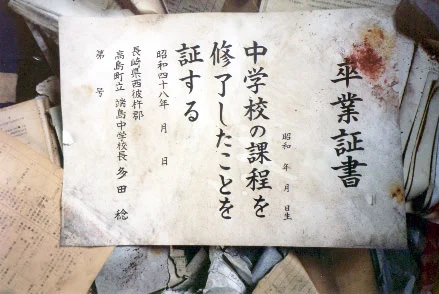 卒業証書
昭和　年　月　日生
中学校の課程を
修了したことを
証する
昭和四十八年　月　日
長崎県西彼杵郡
高島町立 端島中学校長 多田 稔
第　　号